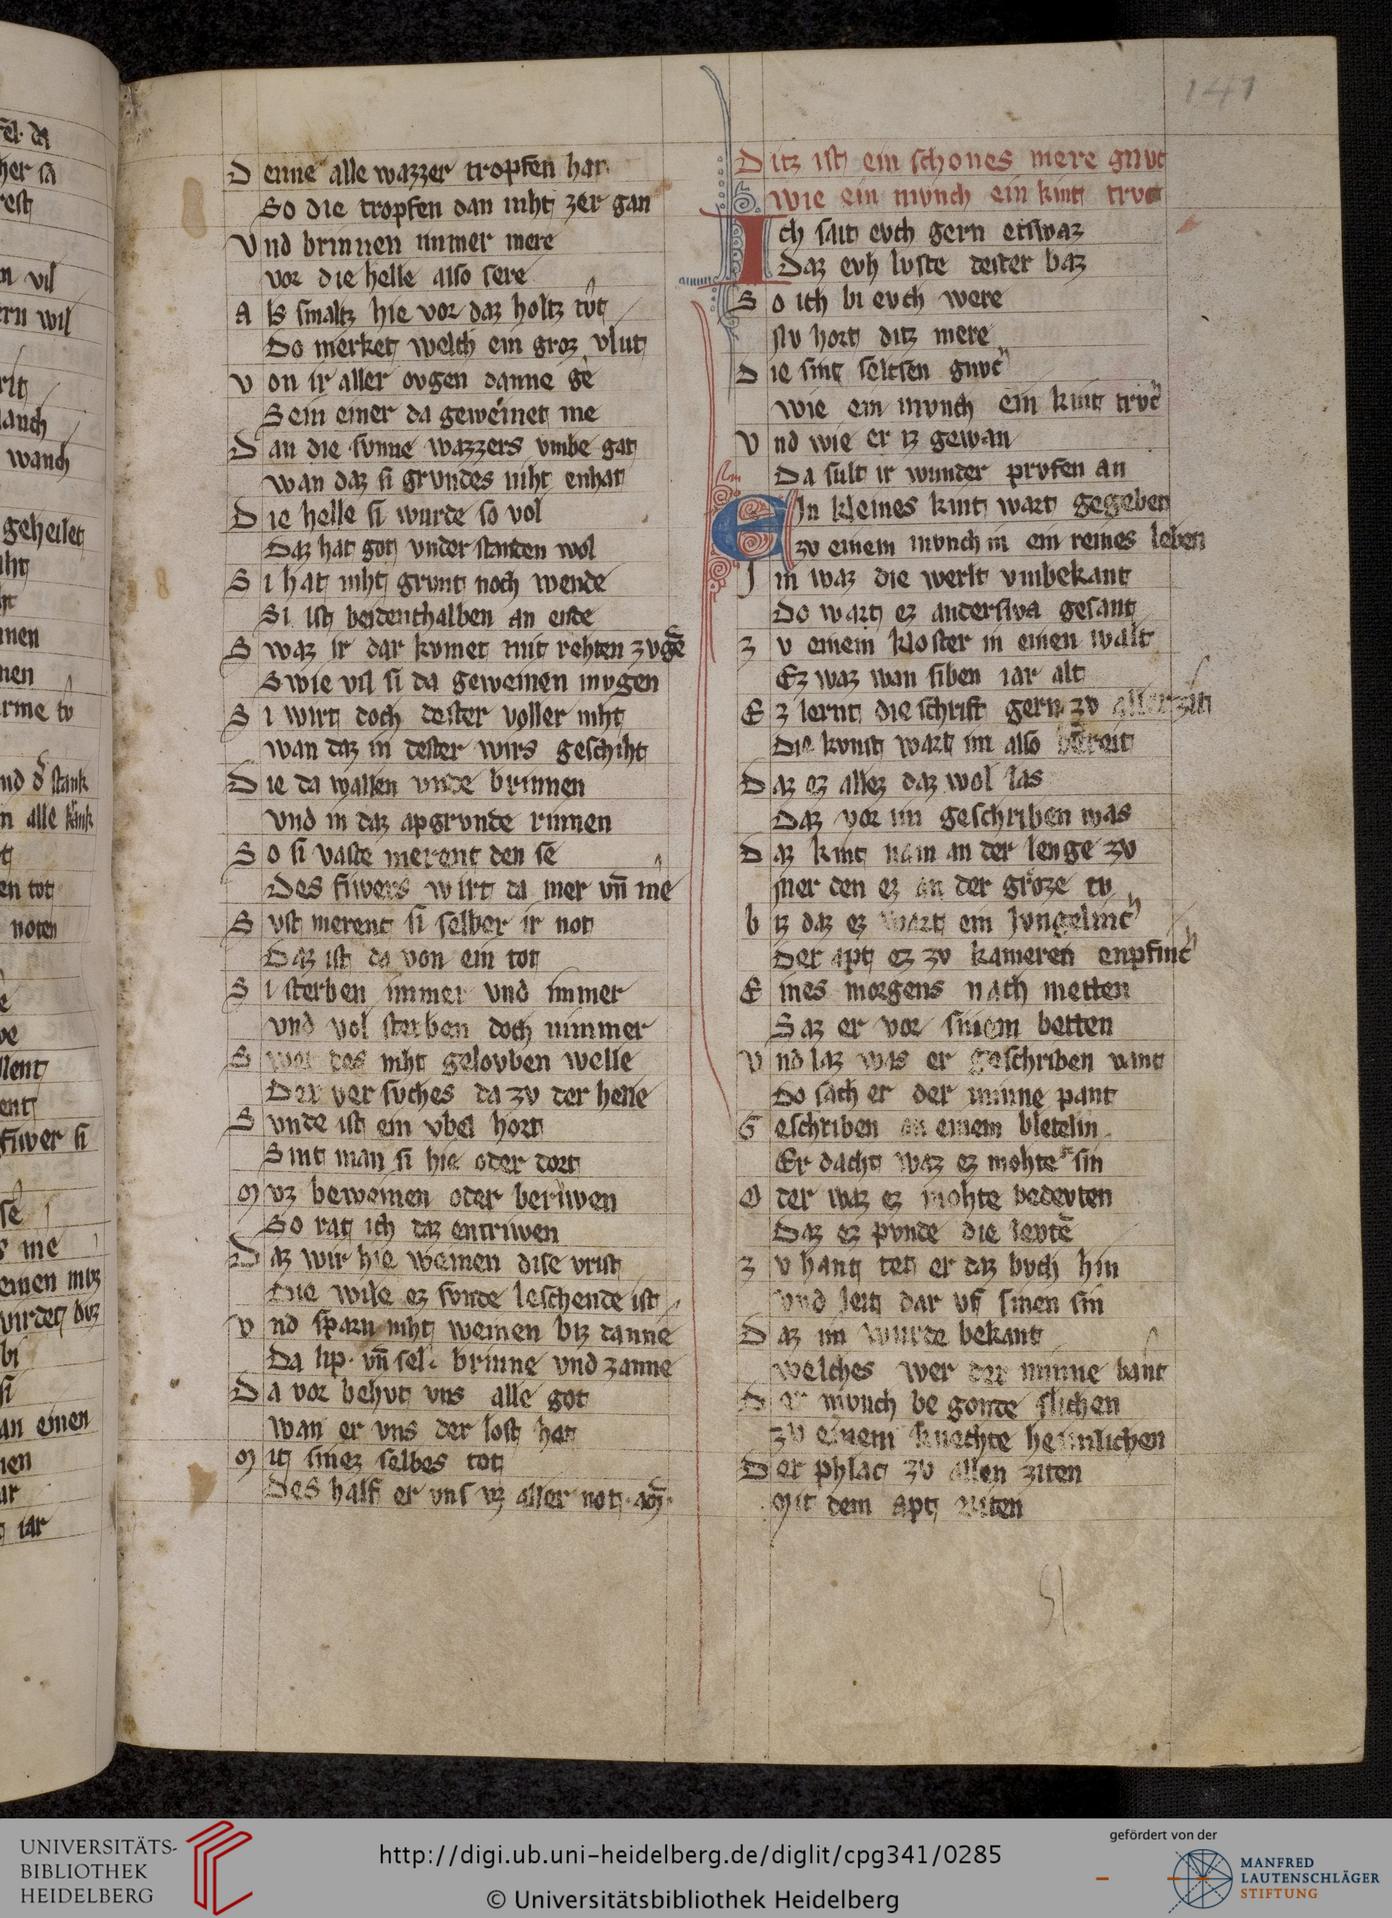 141
Denne alle wazzer tropfen hat
So die tropfen dan niht zer gan
Vnd brinnen immer mere
vor die helle also sere
Als smaltz hie vor daz holtz tut
Do merket welch ein groz vlut
von ir aller ovgen danne ge
Sein einer da geweinet me
Dan die sunne wazzers vmbe gat
wan daz si grvndes niht enhat
Die helle si wurde so vol
Daz hat got vnder standen wol
Si hat niht grunt noch wende
Si ist beidenthalben an ende
Swaz ir dar kvmet mit rehten zvgen
Swie vil si da geweinen mvgen
Si wirt doch dester voller niht
wan daz in dester wirs geschiht
Die da wallen vnde brinnen
vnd in daz apgrvnde rinnen
So si vaste merent den se
Des fiwers wirt da mer vn me
Svst merent si selber ir not
Daz ist da von ein tot
Si sterben immer vnd immer
vnd vol sterben doch nimmer
Swer des niht gelovben welle
Der ver svches da zv der helle
Svnde ist ein vbel hort
Sint man si hie oder dort
Mvz beweinen oder beriwen
So rat ich daz entriwen
Daz wir hie weinen dise vrist
Die wile ez svnde leschende ist
vnd sparn niht weinen biz danne
Da lip vn sel brinne vnd zanne
Da vor behvt vns alle got
wan er vns der lost hat
Mit sinez selbes tot
Des half er vns vz aller not am
Ditz ist ein schones mere gnvc
wie ein mvnch ein kint trvc
Ich sait evch gern etswaz
Daz evh lvste dester baz
So ich bi evch were
Nv hort ditz mere
Die sint seltsen gnvc
wie ein mvnch ein kint trvc
Vnd wie er iz gewan
Da sult ir wunder prvfen an
Ein kleines kint wart gegeben
zv einem mvnch in ein reines leben
Im waz die werlt vmbekant
Do wart ez anderswa gesant
zv einem kloster in einen walt
Ez waz wan siben iar alt
Ez lernt die schrift gern zv aller zit
Die kvnst wart im also bereit
Daz ez allez daz wol las
Daz vor im geschriben was
Daz kint nam an der lenge zv
Mer den ez an der groze tv
biz daz ez wart ein Jvngelinc
Der apt ez zv kameren enpfinc
Eines morgens nach metten
Saz er vor sinem betten
vnd laz was er geschriben vant
Do sach er der minne pant
Geschriben an einem bletelin
Er dacht waz ez mohte sin
Oder waz ez mohte bedevten
Daz ez pvnde die levte
zv hant tet er daz bvch hin
vnd leit dar vf sinen sin
Daz im wurde bekant
welches wer der minne bant
Der mvnch be gonde slichen
zv einem knechte heimlichen
Der phlac zv allen ziten
Mit dem apt riten
UNIVERSITÄTS-
BIBLIOTHEK
HEIDELBERG
http://digi.ub.uni-heidelberg.de/diglit/cpg341/0285
© Universitätsbibliothek Heidelberg
gefördert von der
MANFRED
LAUTENSCHLÄGER
STIFTUNG